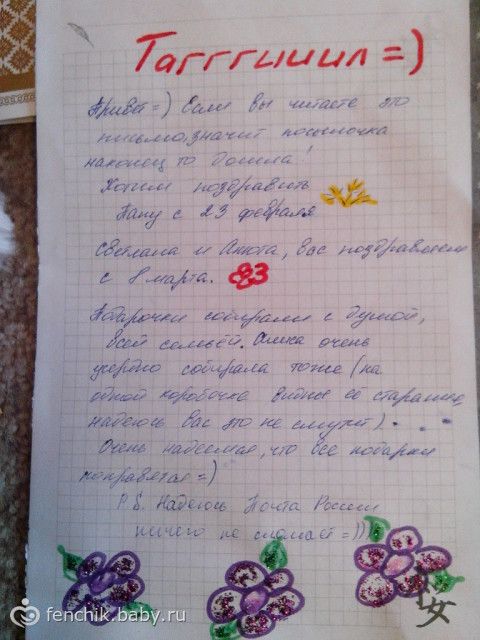 Тагггииил=)
Привет=) Если вы читаете это
письмо, значит посылочка
наконец то дошла!
Хотим поздравить
Папу с 23 февраля
Светлана и Анюта, Вас поздравляем
с 8 марта.
Подарочки собирали с душой,
всей семьёй. очень
усердно собирала тоже (на
одной коробочке видны её старания,
надеюсь вас это не смутит)...
Очень надеемся, что все подарки
понравятся=)
P.S. Надеюсь Почта России
ничего не сломает=)))
fenchik.baby.ru